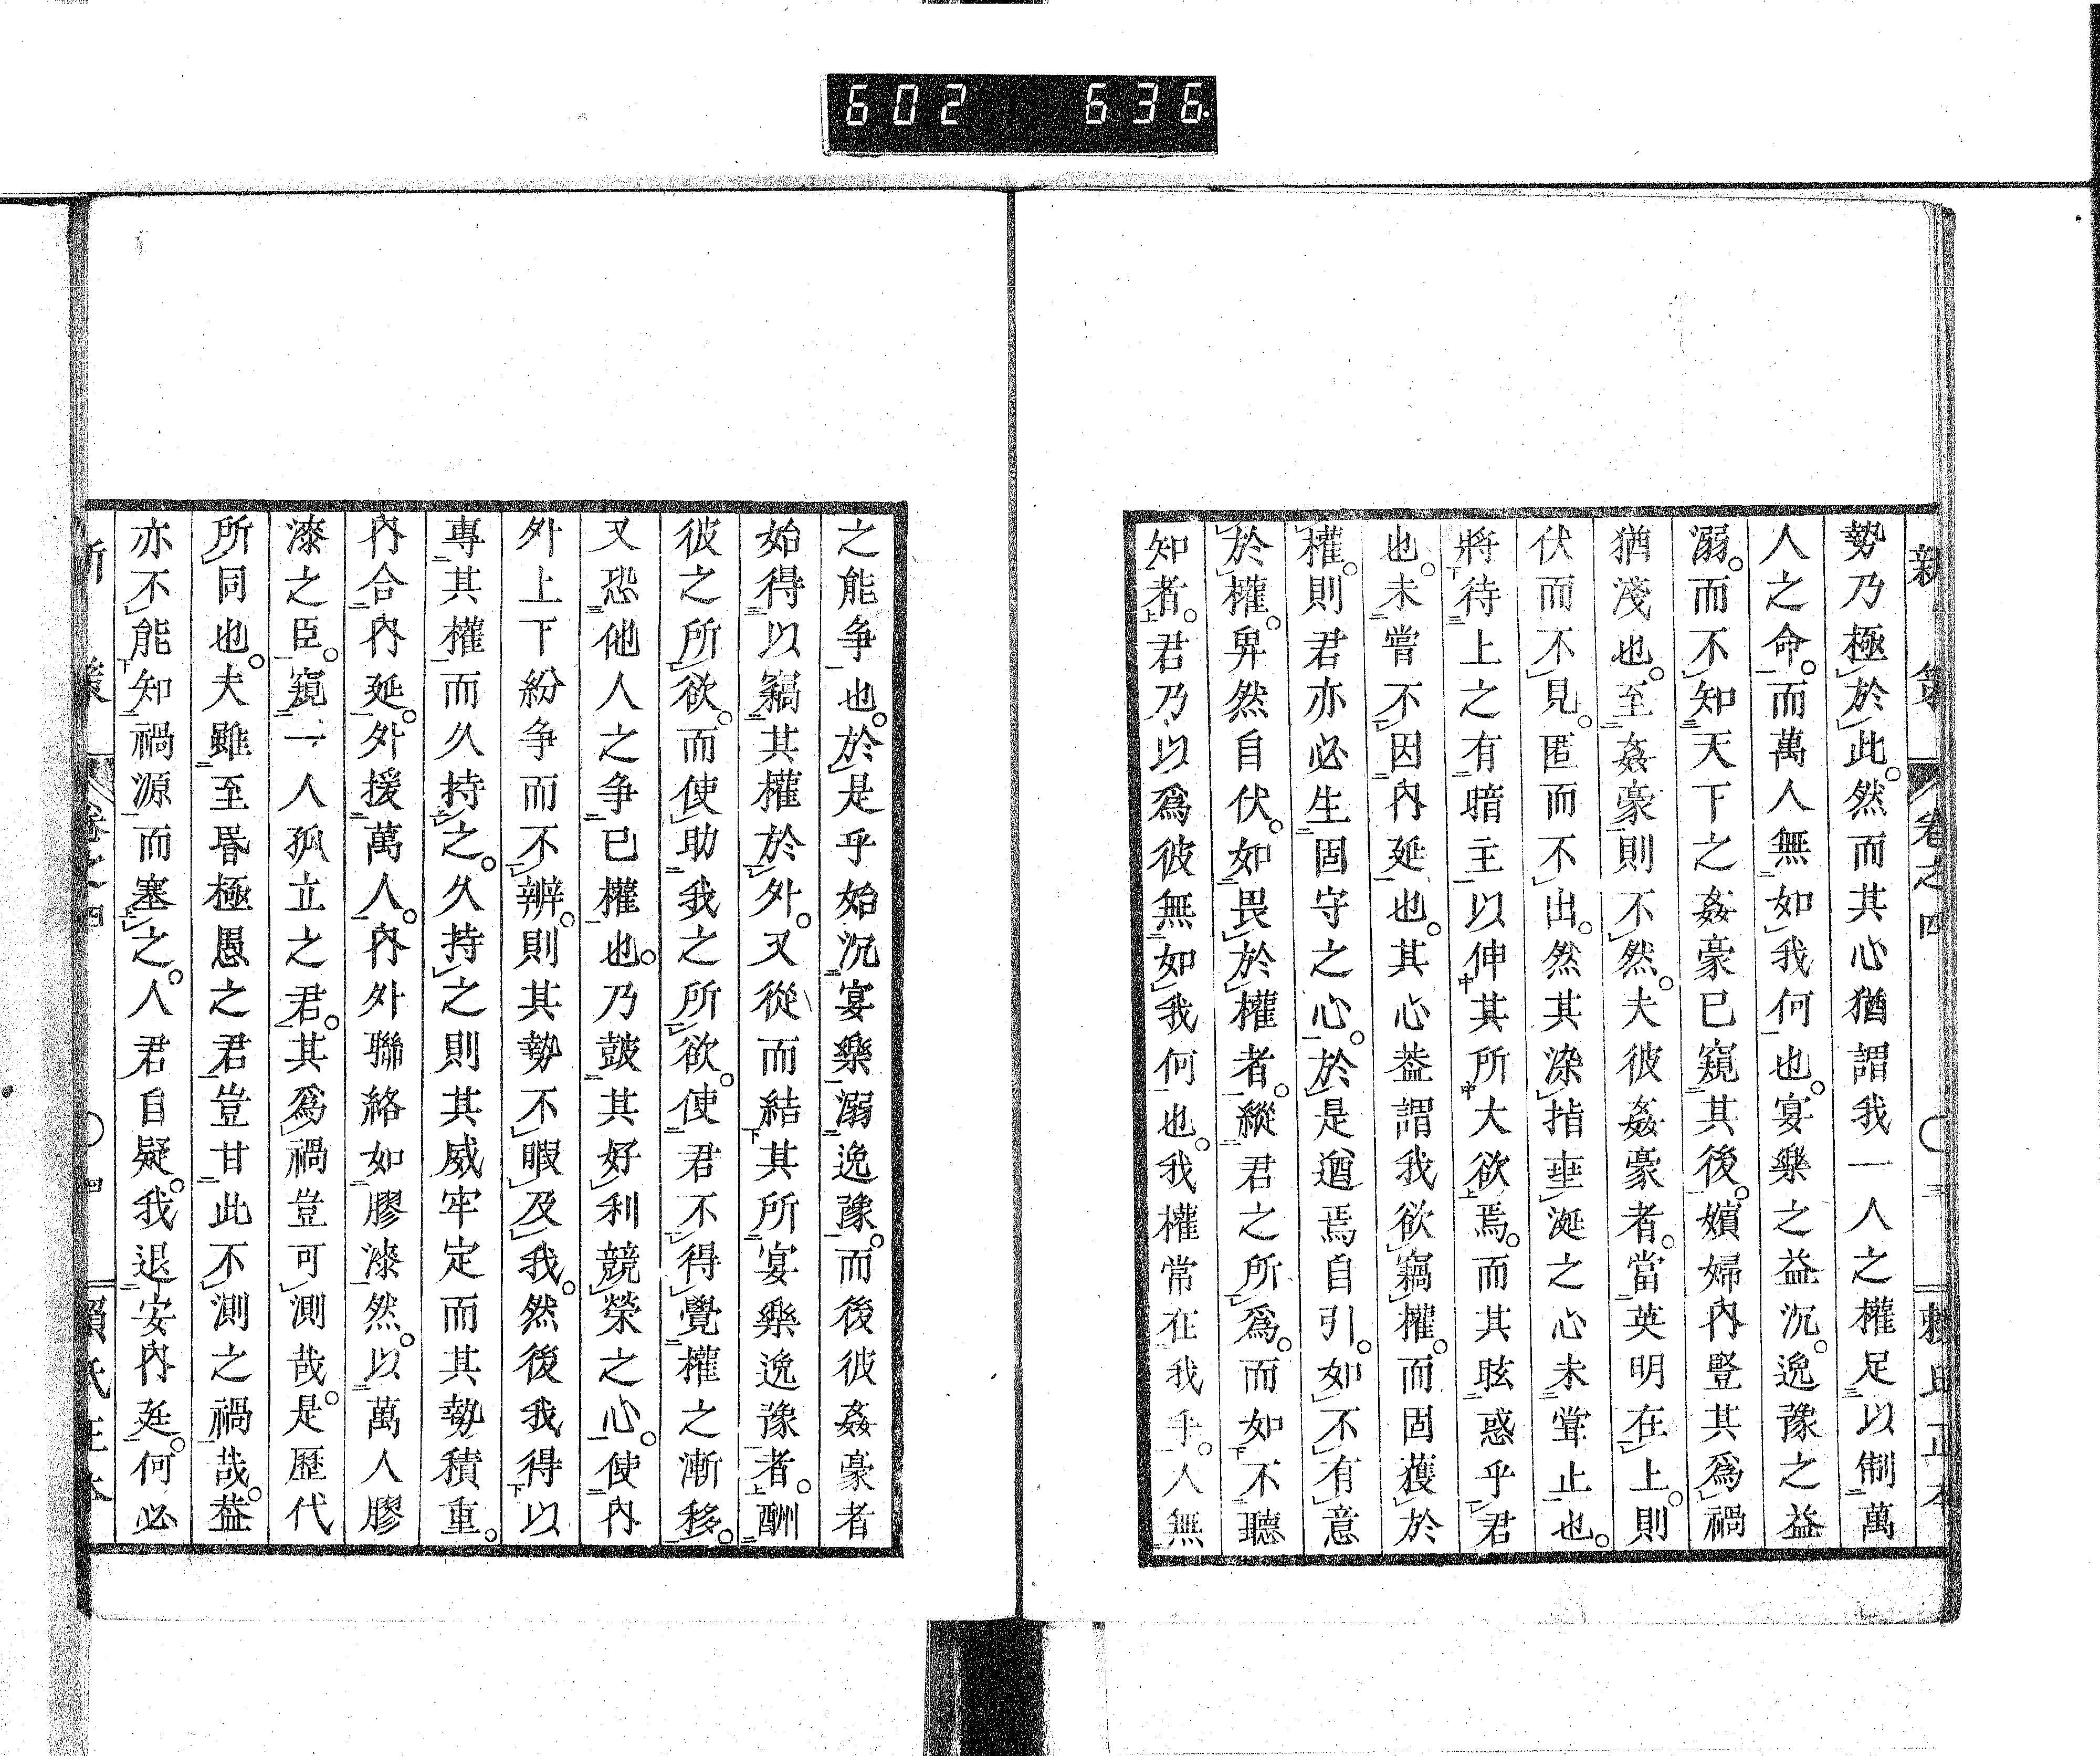 602 636
新策 卷之四 〇三 賴氏正本
勢乃極於此。然而其心猶謂我一人之權足以制萬
人之命。而萬人無如我何也。宴樂之益沉。逸豫之益
溺。而不知天下之姦豪已窺其後。嬪婦內豎其爲禍
猶淺也。至姦豪則不然。夫彼姦豪者。當英明在上。則
伏而不見。匿而不出。然其染指垂涎之心未甞止也。
將待上之有暗主以伸其所大欲焉。而其眩惑乎君
也。未甞不因內廷也。其心益謂我欲竊權。而固獲於
權。則君亦必生固守之心。於是遒焉自引。如不有意
於權。昇然自伏。如畏於權者。縱君之所爲。而如不聽
知者。君乃以爲彼無如我何也。我權常在我乎。人無
之能争也。於是乎始沉宴樂溺逸豫。而後彼姦豪者
始得以竊其權於外。又從而結其所宴樂逸豫者。酬
彼之所欲。而使助我之所欲。使君不得覺權之漸移。
又恐他人之争已權也。乃鼓其好利競榮之心。使內
外上下紛争而不辨。則其勢不暇及我。然後我得以
專其權而久持之。久持之則其威牢定而其勢積重。
內合內廷。外援萬人。內外聯絡如膠漆然。以萬人膠
漆之臣。窺一人孤立之君。其爲禍豈可測哉。是歷代
所同也。夫雖至昏極愚之君。豈甘此不測之禍哉。益
亦不能知禍源而塞之。人君自疑。我退安內廷。何必
新策 卷之四 〇四 賴氏正本